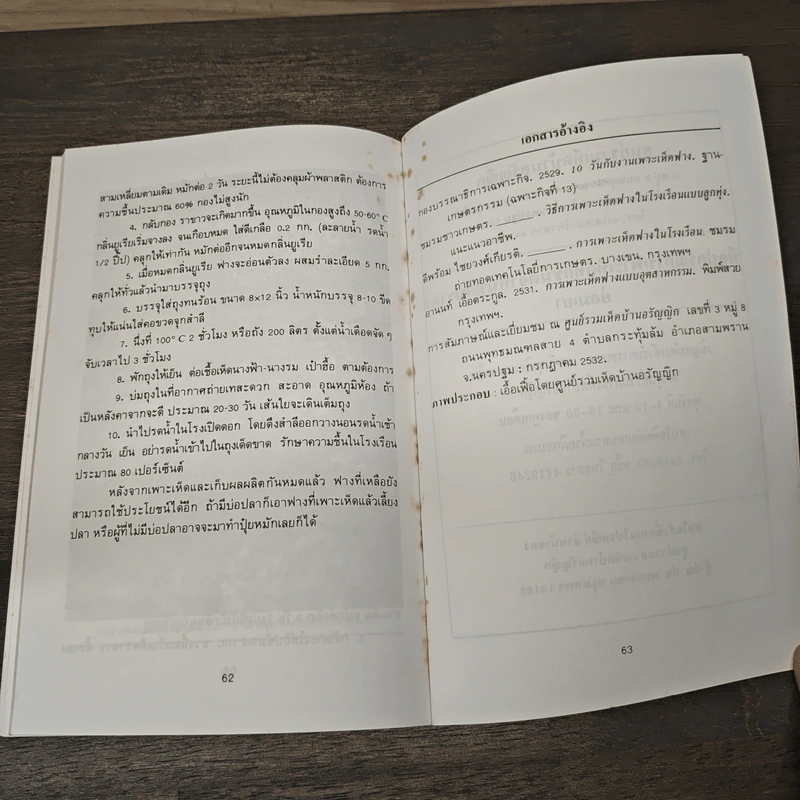 สามเหลี่ยมตามเดิม หมักต่อ 2 วัน ระยะนี้ไม่ต้องคลุมผ้าพลาสติก ต้องการ
ความชื้นประมาณ 60% กองไม่สูงนัก
4. กลับกอง ราขาวจะเกิดมากขึ้น อุณหภูมิในกองสูงถึง 50-60° C
กลิ่นยูเรียเริ่มจางลง จนเกือบหมด ใส่ดีเกลือ 0.2 กก. (ละลายน้ำ รดน้ำ
1/2 ปี๊ป) คลุกให้เท่ากัน หมักต่ออีกจนหมดกลิ่นยูเรีย
5. เมื่อหมดกลิ่นยูเรีย ฟางจะอ่อนตัวลง ผสมรำละเอียด 5 กก.
คลุกให้ทั่วแล้วนำมาบรรจุถุง
6. บรรจุใส่ถุงทนร้อน ขนาด 8×12 นิ้ว น้ำหนักบรรจุ 8-10 ขีด
ทุบให้แน่นใส่คอขวดจุกสำลี
7. นึ่งที่ 100° C 2 ชั่วโมง หรือถัง 200 ลิตร ตั้งแต่น้ำเดือดจัด ๆ
จับเวลาไป 3 ชั่วโมง
8. พักถุงให้เย็น ต่อเชื้อเห็ดนางฟ้า-นางรม เป๋าฮื้อ ตามต้องการ
9. บ่มถุงในที่อากาศถ่ายเทสะดวก สะอาด อุณหภูมิห้อง ถ้า
เป็นหลังคาจากจะดี ประมาณ 20-30 วัน เส้นใยจะเดินเต็มถุง
10. นำไปรดน้ำในโรงเปิดดอก โดยดึงสำลีออกวางนอนรดน้ำเช้า
กลางวัน เย็น อย่ารดน้ำเข้าไปในถุงเด็ดขาด รักษาความชื้นในโรงเรือน
ประมาณ 80 เปอร์เซ็นต์
หลังจากเพาะเห็ดและเก็บผลผลิตกันหมดแล้ว ฟางที่เหลือยัง
สามารถใช้ประโยชน์ได้อีก ถ้ามีบ่อปลาก็เอาฟางที่เพาะเห็ดแล้วเลี้ยง
ปลา หรือผู้ที่ไม่มีบ่อปลาอาจจะมาทำปุ๋ยหมักเลยก็ได้
62
เอกสารอ้างอิง
กองบรรณาธิการเฉพาะกิจ. 2529. 10 วันกับงานเพาะเห็ดฟาง. ฐาน-
เกษตรกรรม (ฉพาะกิจที่ 13)
ชมรมชาวเกษตร. ______. วิธีการเพาะเห็ดฟางในโรงเรือนแบบลูกทุ่ง.
แนะแนวอาชีพ.
ดีพร้อม ไชยวงศ์เกียรติ. ______. การเพาะเห็ดฟางในโรงเรือน. ชมรม
ถ่ายทอดเทคโนโลยีการเกษตร. บางเขน. กรุงเทพฯ
อานนท์ เอื้อตระกูล. 2531. การเพาะเห็ดฟางแบบอุตสาหกรรม. พิมพ์สวย
กรุงเทพฯ.
การสัมภาษณ์และเยี่ยมชม ณ ศูนย์รวมเห็ดบ้านอรัญญิก เลขที่ 3 หมู่ 8
ถนนพุทธมณฑลสาย 4 ตำบลกระทุ่มล้ม อำเภอสามพราน
จ.นครปฐม : กรกฎาคม 2532.
ภาพประกอบ : เอื้อเฟื้อโดยศูนย์รวมเห็ดบ้านอรัญญิก
63